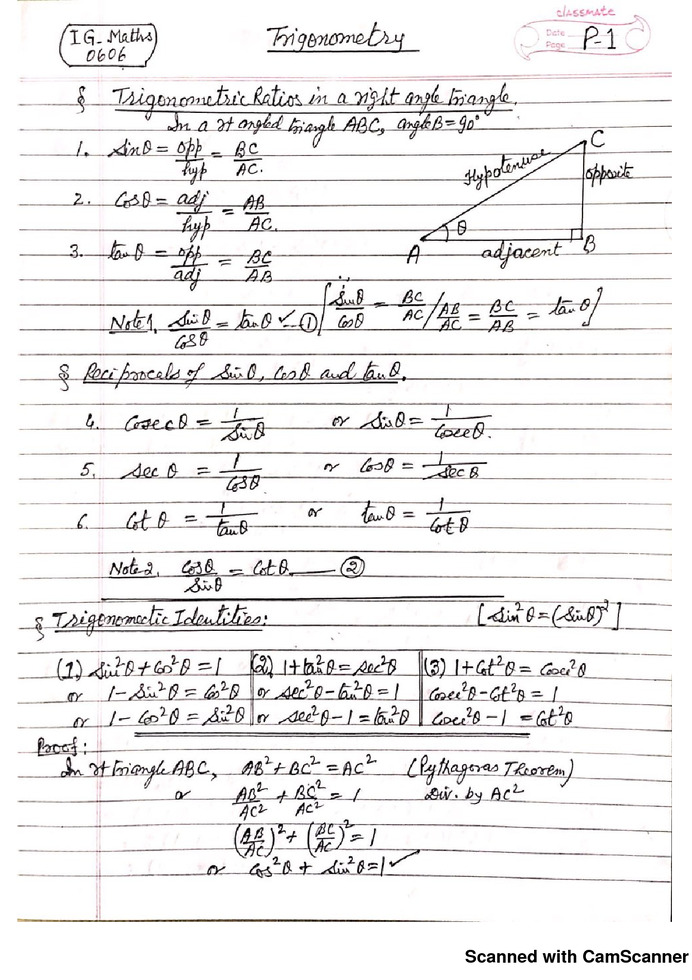 classmate
Date
Page P-1
IG-Maths
0606
Trigonometry
§ Trigonometric Ratios in a right angle triangle.
In a rt angled triangle ABC, angle B = 90°
1. sinθ = opp/hyp = BC/AC.
2. Cosθ = adj/hyp = AB/AC.
3. tanθ = opp/adj = BC/AB
C
Hypotenuse
opposite
θ
A
adjacent
B
Note 1. sinθ/cosθ = tanθ ✓ — ① [∵ sinθ/cosθ = BC/AC / AB/AC = BC/AB = tanθ]
§ Reciprocals of sinθ, cosθ and tanθ.
4. Cosecθ = 1/sinθ or sinθ = 1/cosecθ.
5. secθ = 1/cosθ or cosθ = 1/secθ
6. Cotθ = 1/tanθ or tanθ = 1/cotθ
Note 2. cosθ/sinθ = cotθ — ②
§ Trigonometic Identities: [sin²θ = (sinθ)²]
(1) sin²θ + cos²θ = 1 (2) 1 + tan²θ = sec²θ (3) 1 + cot²θ = cosec²θ
or 1 - sin²θ = cos²θ or sec²θ - tan²θ = 1 cosec²θ - cot²θ = 1
or 1 - cos²θ = sin²θ or sec²θ - 1 = tan²θ cosec²θ - 1 = cot²θ
Proof:
In rt triangle ABC, AB² + BC² = AC² (Pythagoras Theorem)
or AB²/AC² + BC²/AC² = 1 Div. by AC²
(AB/AC)² + (BC/AC)² = 1
or cos²θ + sin²θ = 1 ✓
Scanned with CamScanner